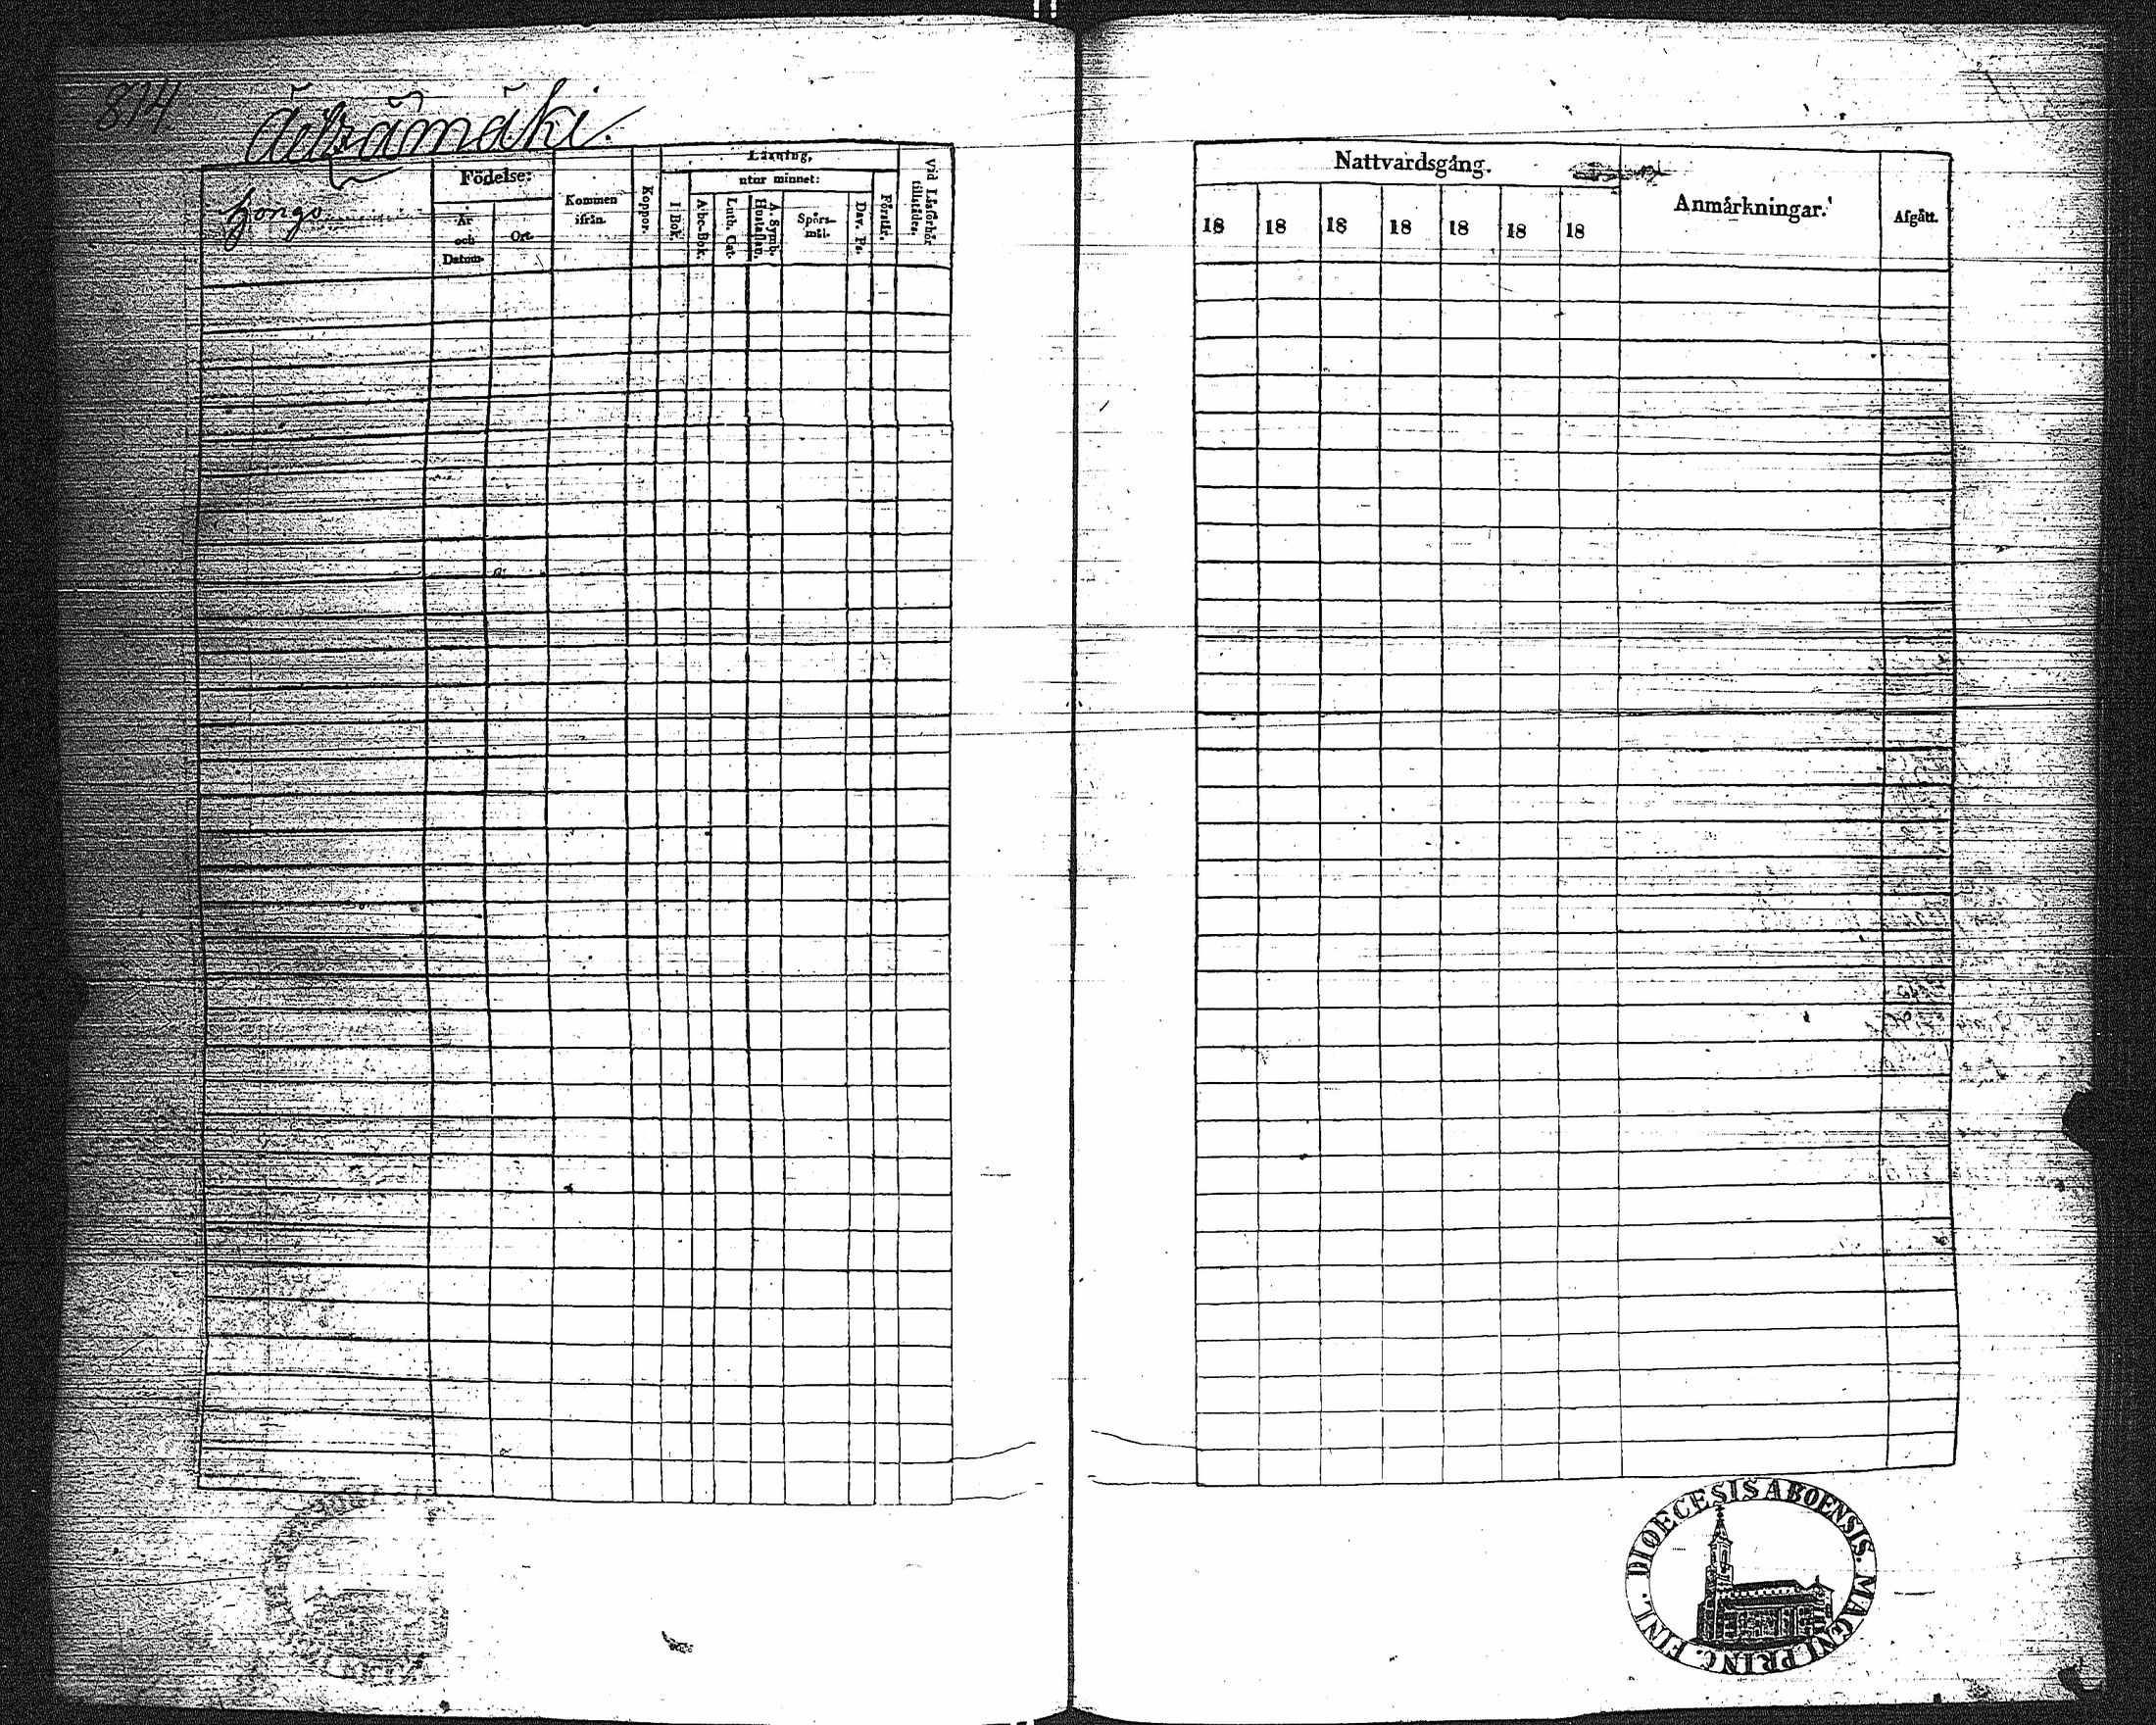 814
Äitsämäki.
Hongo
Födelse:
År
och
Datum.
Ort.
Kommen
ifrån.
Koppor.
Läsning,
utur minnet:
I Bok.
Abc-Bok.
Luth. Cat.
A. Symb.
Hustaflan.
Spörs-
mål.
Dav. Ps.
Förstår.
Vid Läsförhör
tillstädes.
Nattvardsgång.
18 18 18 18 18 18 18
Anmärkningar.
Afgått.
DIOECESIS ABOENSIS. MAGNI PRINC. FINL.